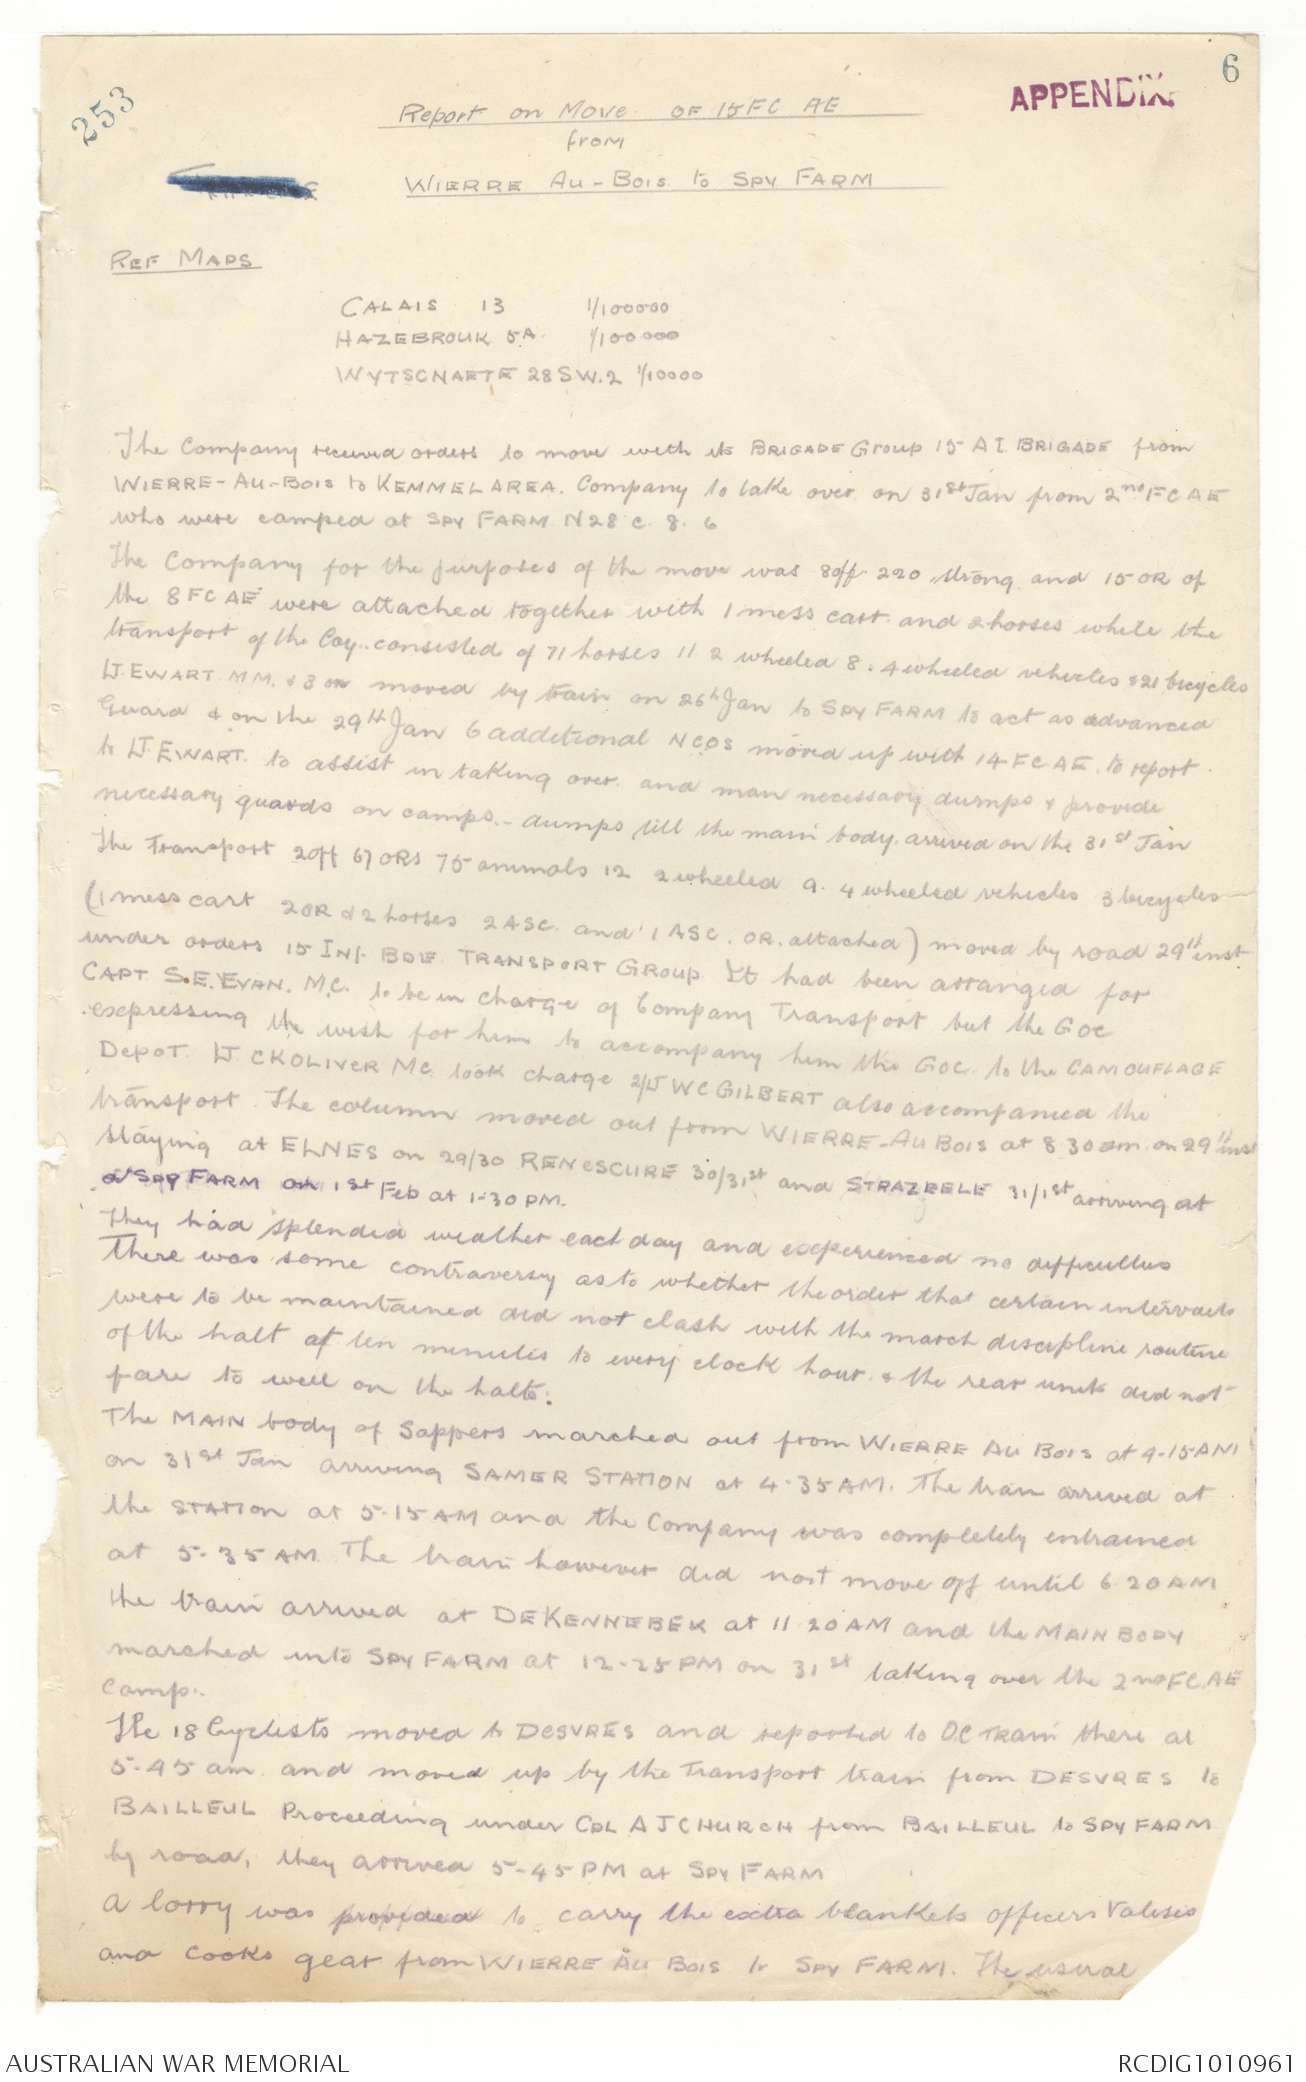 253
6
APPENDIX
Report on Move OF 15 FC AE
from
WIERRE AU-BOIS to SPY FARM
REF MAPS
CALAIS 13 1/100000
HAZEBROUK 5A. 1/100000
WYTSCHAETE 28 SW.2 1/10000
The Company received orders to move with its BRIGADE Group 15 A I BRIGADE from
WIERRE-AU-BOIS to KEMMEL AREA. Company to take over on 31st Jan from 2nd FC AE
who were camped at SPY FARM N28 c. 8. 6
The Company for the purposes of the move was 8 off 220 strong and 15 OR of
the 8 FC AE were attached together with 1 mess cart and 2 horses while the
transport of the Coy. consisted of 71 horses 11 2 wheeled 8. 4 wheeled vehicles & 21 bicycles
Lt. EWART MM. & 3 OR moved by train on 26th Jan to SPY FARM to act as advanced
Guard & on the 29th Jan 6 additional NCOS moved up with 14 FC AE. to report
to Lt EWART. to assist in taking over and man necessary dumps & provide
necessary guards on camps - dumps till the main body arrived on the 31st Jan
The Transport 2 off 67 ORs 75 animals 12 2 wheeled 9. 4 wheeled vehicles 3 bicycles
(1 mess cart 2 OR & 2 horses 2 ASC. and 1 ASC. OR. attached) moved by road 29th inst
under orders 15 Inf. BDE TRANSPORT GROUP. It had been arranged for
CAPT S.E. EVAN. M.C. to be in charge of Company Transport but the GOC
expressing the wish for him to accompany him the GOC. to the CAMOUFLAGE
DEPOT. Lt. CKOLIVER MC. took charge 2/Lt WC GILBERT also accompanied the
transport. The column moved out from WIERRE-AU BOIS at 8.30 am. on 29th inst
staying at ELNES on 29/30 RENESCURE 30/31st and STRAZEELE 31/1st arriving at
SPY FARM on 1st Feb at 1-30 PM.
They had splendid weather each day and experienced no difficulties
There was some contraversy as to whether the order that certain intervals
were to be maintained did not clash with the march discipline routine
of the halt at ten minutes to every clock hour. & the rear units did not
fare to well on the halts.
The MAIN body of Sappers marched out from WIERRE AU BOIS at 4-15 AM
on 31st Jan arriving SAMER STATION at 4-35 AM. The train arrived at
the STATION at 5-15 AM and the Company was completely entrained
at 5-35 AM. The train however did not move off until 6 20 AM
the train arrived at DEKENNEBEK at 11 20 AM and the MAIN BODY
marched into SPY FARM at 12-25 PM on 31st taking over the 2nd FC. AE
Camp.
The 18 Cyclists moved to DESVRES and reported to OC TRAIN there at
5-45 am. and moved up by the Transport train from DESVRES to
BAILLEUL Proceeding under CPL A J CHURCH from BAILLEUL to SPY FARM
by road, they arrived 5-45 PM at SPY FARM
A lorry was provided to carry the extra blankets officers Valises
and cooks gear from WIERRE AU BOIS to SPY FARM. The usual
AUSTRALIAN WAR MEMORIAL
RCDIG1010961